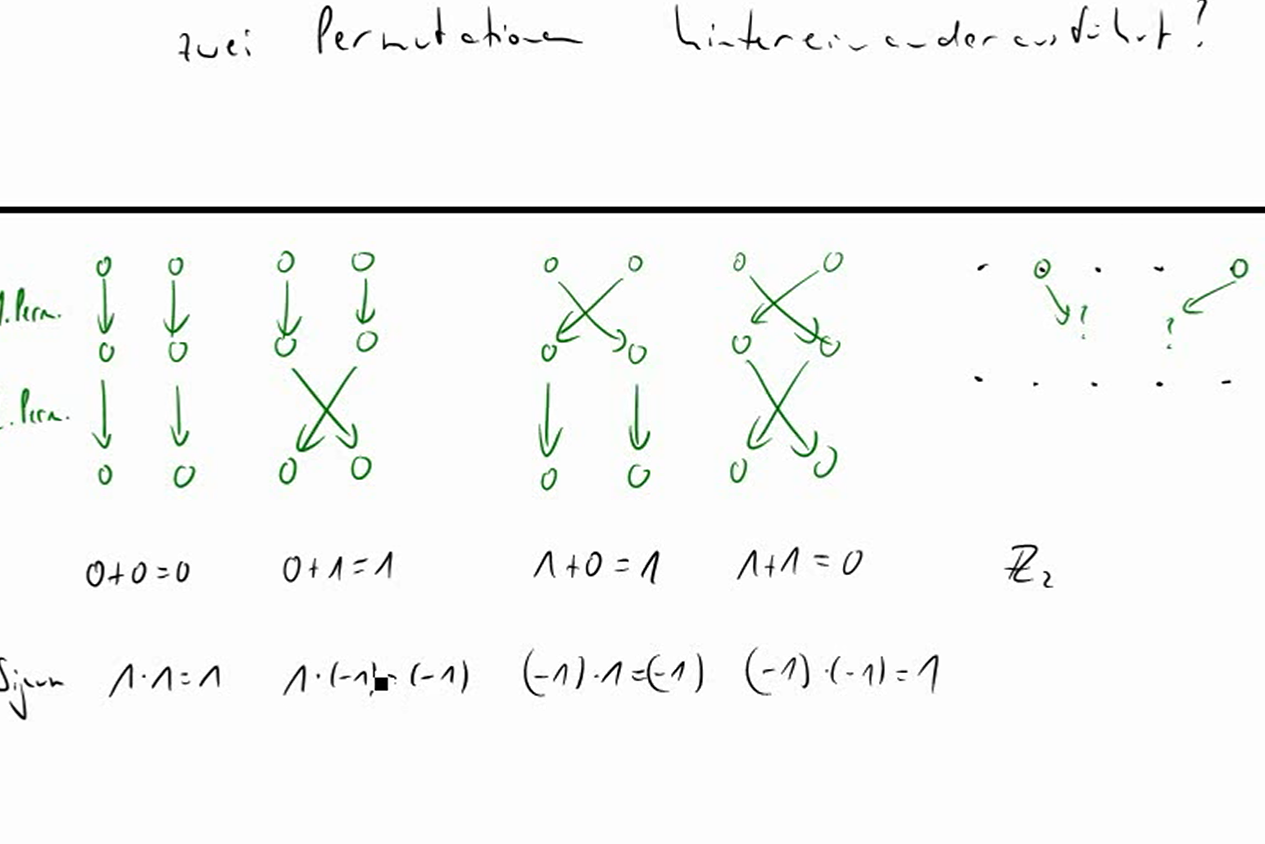 zwei Permutationen hintereinanderausführt?
1. Perm.
? ?
2. Perm.
0+0=0 0+1=1 1+0=1 1+1=0 ℤ₂
Signum 1·1=1 1·(-1)=(-1) (-1)·1=(-1) (-1)·(-1)=1